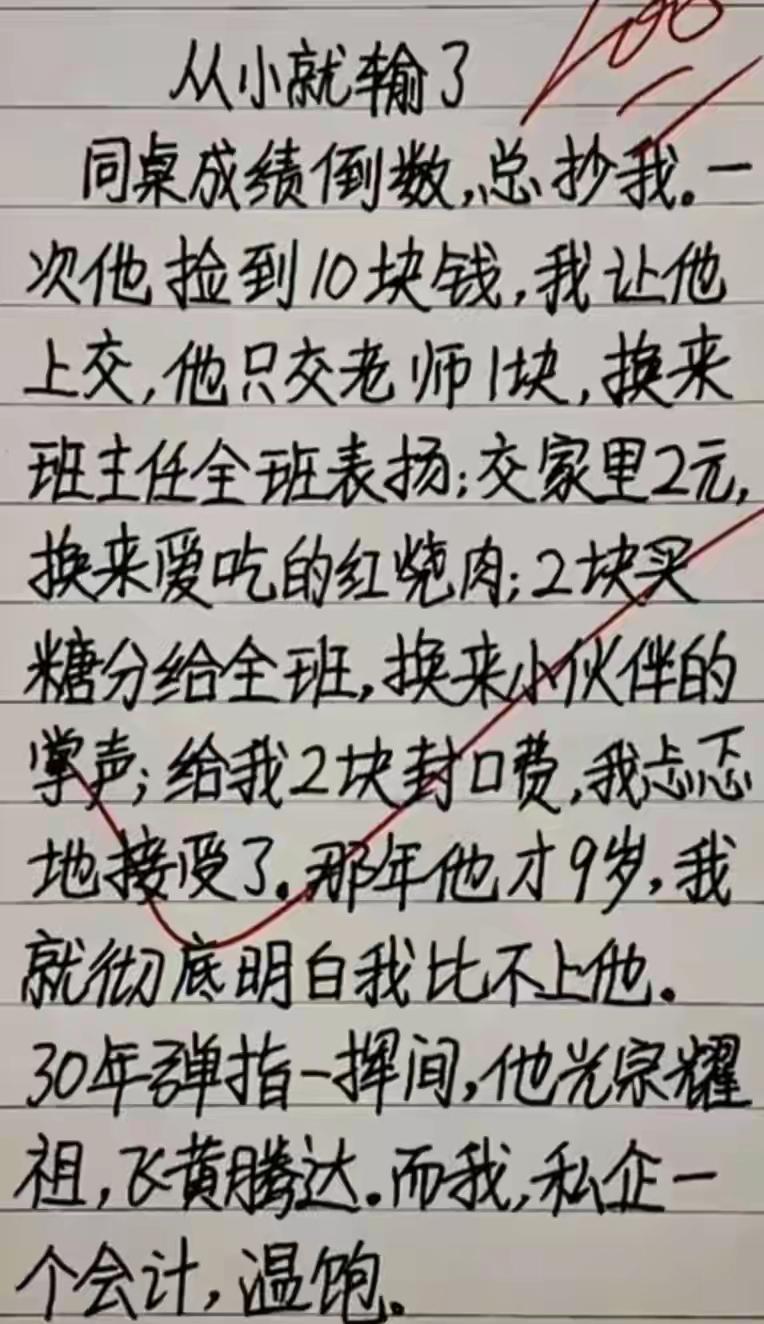 从小就输了
100
同桌成绩倒数,总抄我。一
次他捡到10块钱,我让他
上交,他只交老师1块,换来
班主任全班表扬;交家里2元,
换来爱吃的红烧肉;2块买
糖分给全班,换来小伙伴的
掌声;给我2块封口费,我忐忑
地接受了。那年他才9岁,我
就彻底明白我比不上他。
30年弹指一挥间,他光宗耀
祖,飞黄腾达。而我,私企一
个会计,温饱。